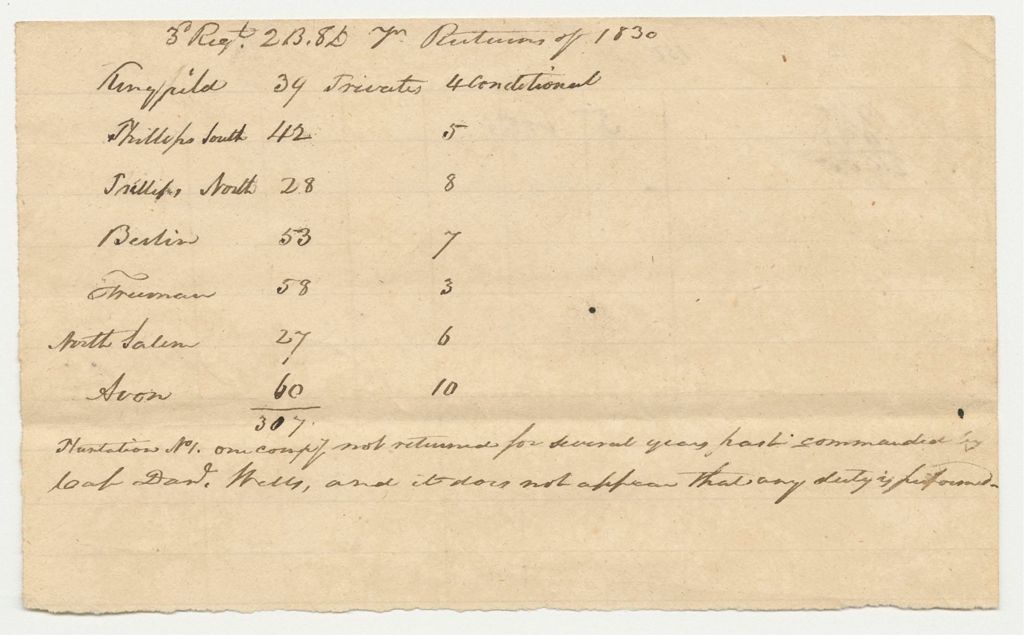 3d Regt. 2 B. 8 D Returns of 1830
Kingfield 39 Privates 4 Conditional
Phillips South 42 5
Phillips North 28 8
Berlin 53 7
Freeman 58 3
North Salem 27 6
Avon 60 10
307.
Plantation No 1. one compy not returned for several years past commanded by
Cap Danl. Wells, and it does not appear that any duty is performed.